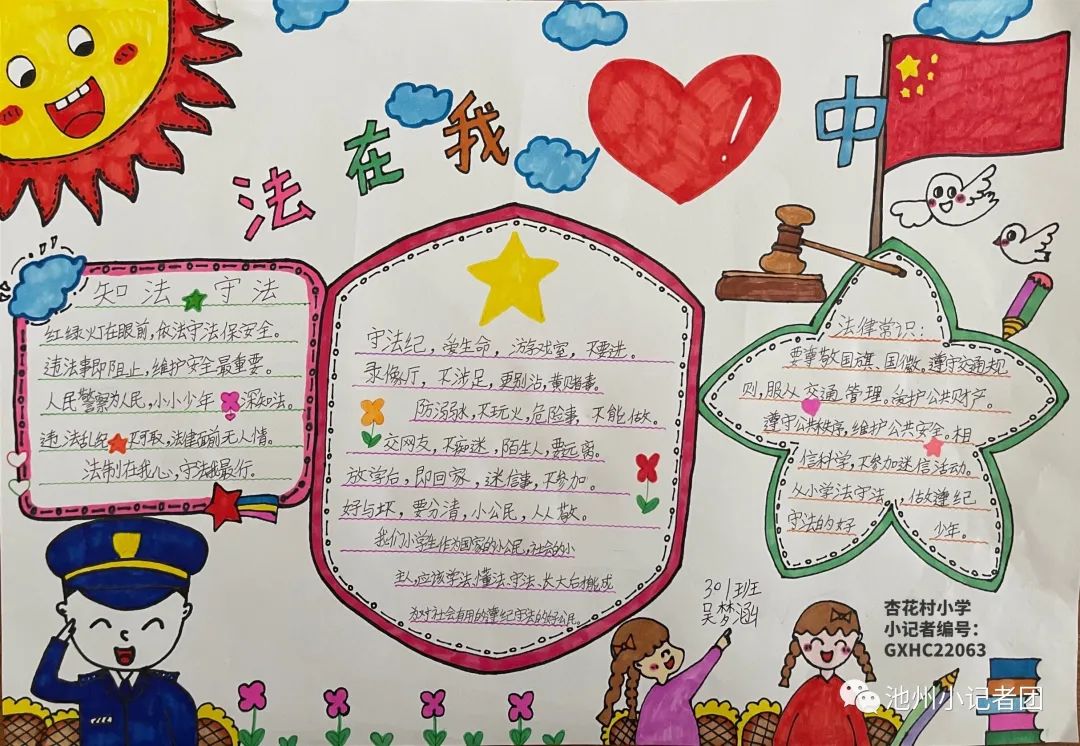 法在我
中
知法 守法
红绿灯在眼前,依法守法保安全。
违法事即阻止,维护安全最重要。
人民警察为人民,小小少年 深知法。
违法乱纪 不可取,法律面前无人情。
法制在我心、守法我最行。
守法纪,爱生命,游戏室,不要进。
录像厅,不涉足,更别沾,黄赌毒。
防溺水,不玩火,危险事,不能做。
交网友,不痴迷,陌生人,要远离。
放学后,即回家,迷信事,不参加。
好与坏,要分清,小公民,人人敬。
我们小学生作为国家的小公民,社会的小
主人,应该学法、懂法、守法、长大后才能成
为对社会有用的遵纪守法的好公民。
法律常识:
要尊敬国旗、国徽,遵守交通规
则,服从交通管理。爱护公共财产。
遵守公共秩序,维护公共安全。相
信科学,不参加迷信活动。
从小学法守法,做遵纪
守法的好 少年。
301班
吴梦涵
杏花村小学
小记者编号:
GXHC22063
池州小记者团